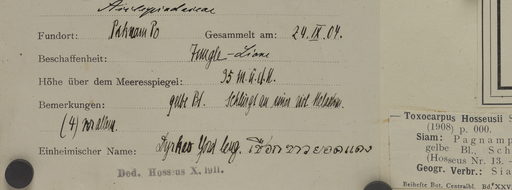 Asclepiadaceae
Fundort: Paknam Po Gesammelt am: 24. IX. 04.
Beschaffenheit: Jungle-Liane
Höhe über dem Meeresspiegel: 35 m. ü. d. M.
Bemerkungen: gelbe Bl. Schlingt an
(4)
Einheimischer Name: เชือก ขาว ยอด แดง
Ded. Hosseus X. 1911.
Toxocarpus Hosseusii S
(1908) p. 000.
Siam: Pagnamp
gelbe Bl., Sch
(Hosseus Nr. 13. —
Geogr. Verbr.: Sia
Beihefte Bot. Centralbl. Bd. XXV